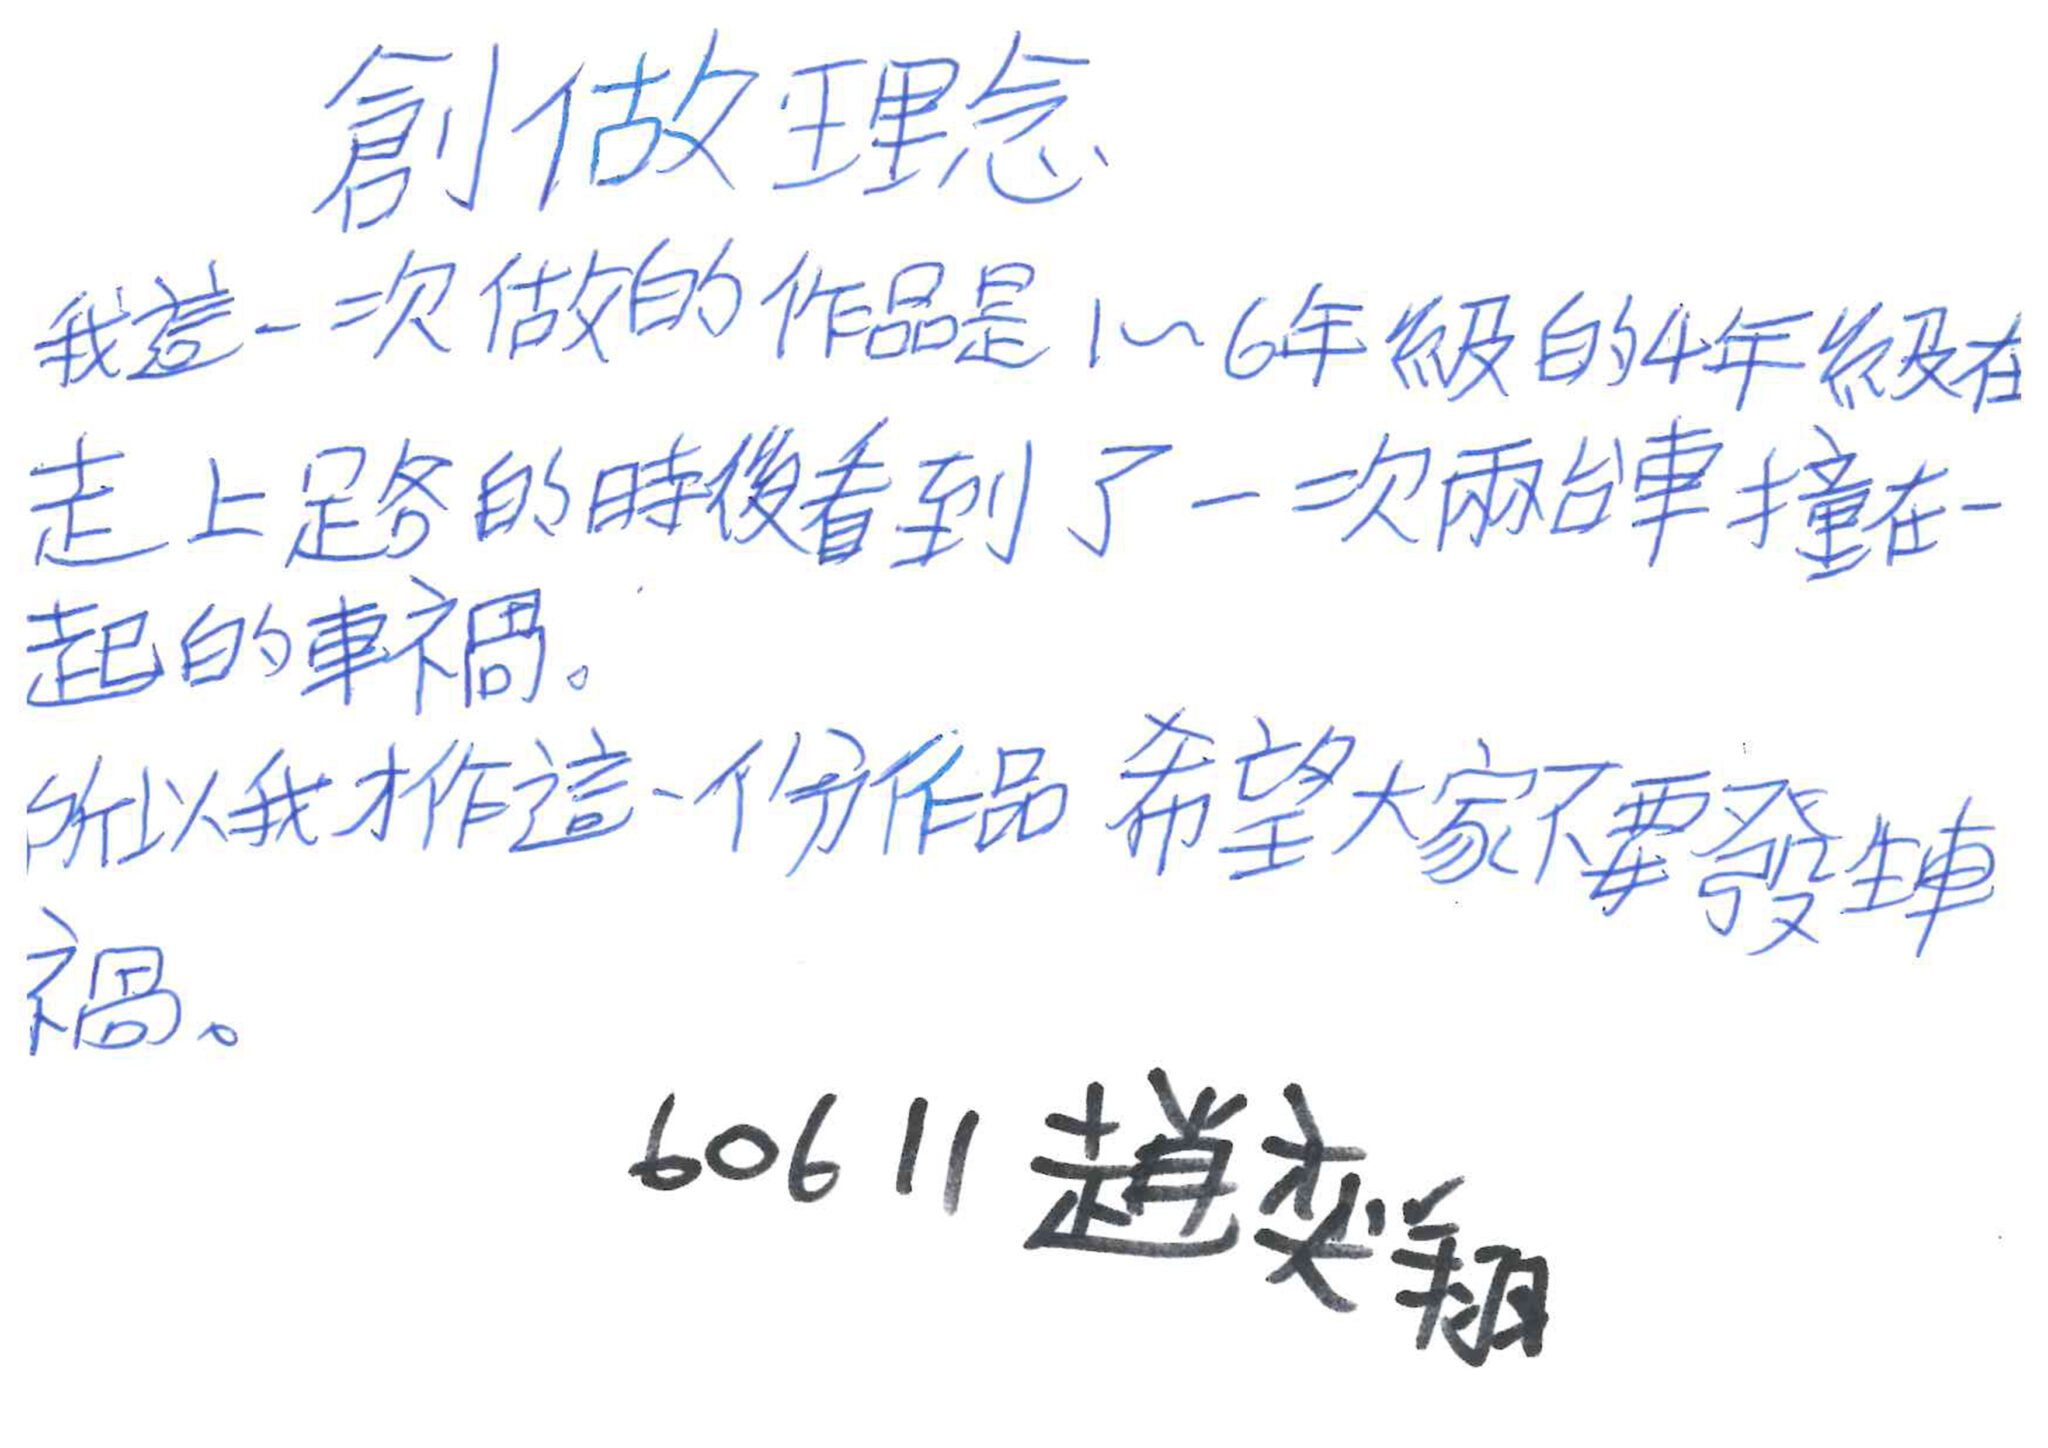 創做理念
我這一次做的作品是1~6年級的4年級在
走上路的時後看到了一次兩台車撞在一
起的車禍。
所以我才作這一份作品 希望大家不要發生車
禍。
60611 趙奕翔